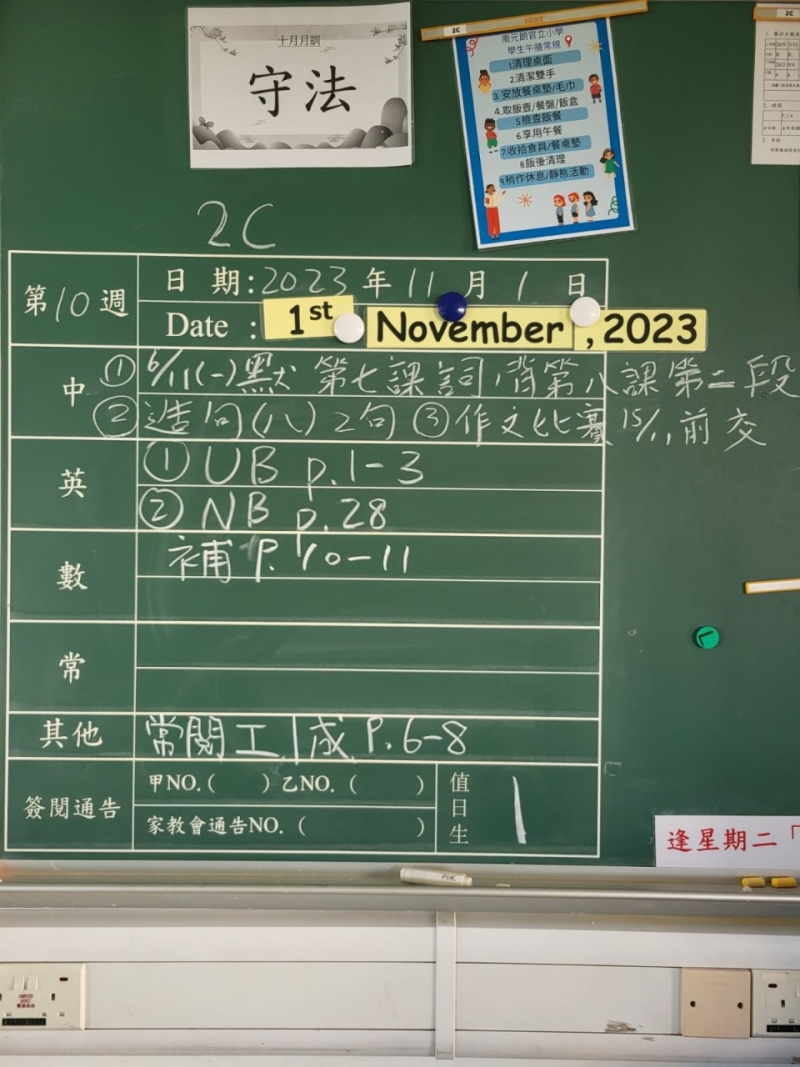 十月月訓
守法
2C
南元朗官立小學
學生午膳常規
1清理桌面
2.清潔雙手
3.安放餐桌墊/毛巾
4.取飯壺/餐盤/飯盒
5檢查飯餐
6.享用午餐
7.收拾食具/餐桌墊
8.飯後清理
9.稍作休息/靜態活動
2C
2C
第10週
日期:2023年11月1日
Date : 1st November, 2023
中
①6/11(一)默 第七課詞,背第八課第二段
②造句(八)2句 ③作文比賽15/11前交
英
①UB p.1-3
②NB p.28
數
補P.10-11
常
其他
常閱工 成P.6-8
簽閱通告
甲NO.( )乙NO.( )
家教會通告NO.( )
值日生
1
逢星期二「